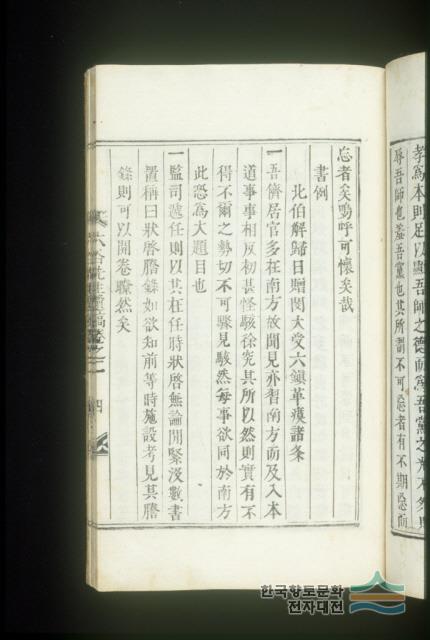 孝爲本則足以顯吾師之德而爲吾黨之光不然則
辱吾師也羞吾黨也其所謂不可忘者有不期忘而
忘者矣嗚呼可懷矣哉
書例
北伯解歸日贈閔大受六鎭革瘼諸条
一吾儕居官多在南方故聞見亦習南方而及入本
道事事相反初甚怪駭徐究其所以然則實有不
得不爾之勢切不可驟見駭然每事欲同於南方
此恐爲大題目也
一監司遞任則以其在任時狀啓無論閒緊沒數書
置稱曰狀啓謄錄如欲知前等時施設考見其謄
錄則可以開卷瞭然矣
四
한국향토문화
전자대전